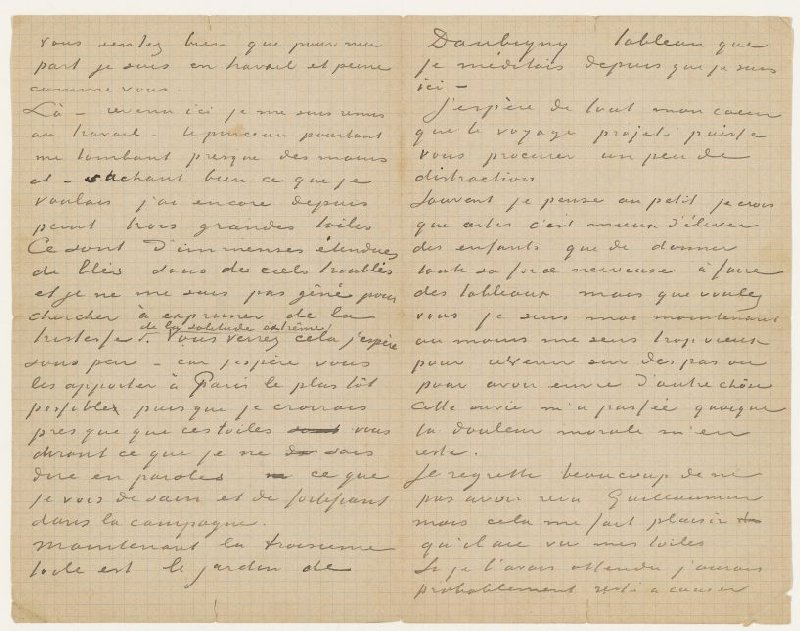 vous sentez bien que pour ma
part je suis en travail et peine
comme vous.
Là – revenu ici je me suis remis
au travail – le pinceau pourtant
me tombant presque des mains
et – sachant bien ce que je
voulais j'ai encore depuis
peint trois grandes toiles
Ce sont d'immenses étendues
de blés sous des ciels troublés
et je ne me suis pas gêné pour
chercher à exprimer de la
tristesse, de la solitude extrême.
Vous verrez cela j'espère
sous peu – car j'espère vous
les apporter à Paris le plus tôt
possible puisque je croirais
presque que ces toiles sont vous
diront ce que je ne sais
dire en paroles ce que
je vois de sain et de fortifiant
dans la campagne.
Maintenant la troisieme
toile est le jardin de
Daubigny tableau que
je méditais depuis que je suis
ici –
J'espère de tout mon coeur
que le voyage projeté puisse
vous procurer un peu de
distraction
Souvent je pense au petit je crois
que certes c'est mieux d'élever
des enfants que de donner
toute sa force nerveuse à faire
des tableaux mais que voulez
vous je suis moi maintenant
au moins me sens trop vieux
pour revenir sur des pas ou
pour avoir envie d'autre chose
Cette envie m'a passée quoique
la douleur morale m'en
reste.
Je regrette beaucoup de ne
pas avoir revu Guillaumin
mais cela me fait plaisir
qu'il aie vu mes toiles
Si je l'avais attendu j'aurais
probablement resté a causer